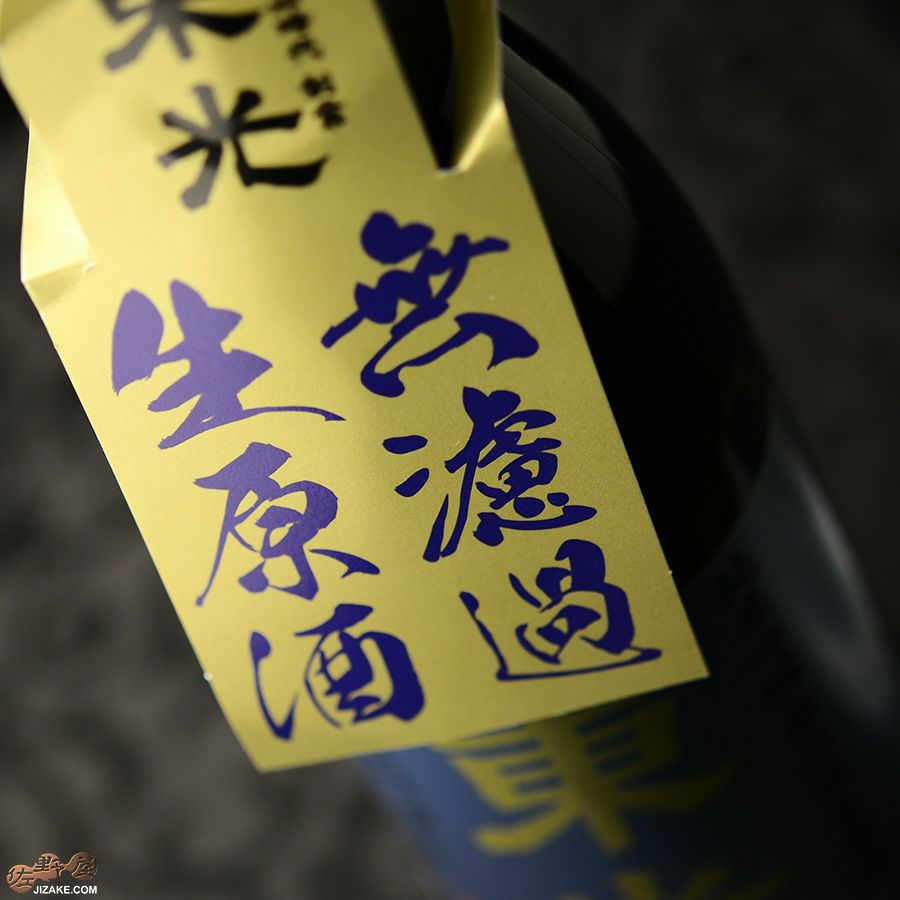 東光
無濾過
生原酒
東光
佐野屋
JIZAKE.COM